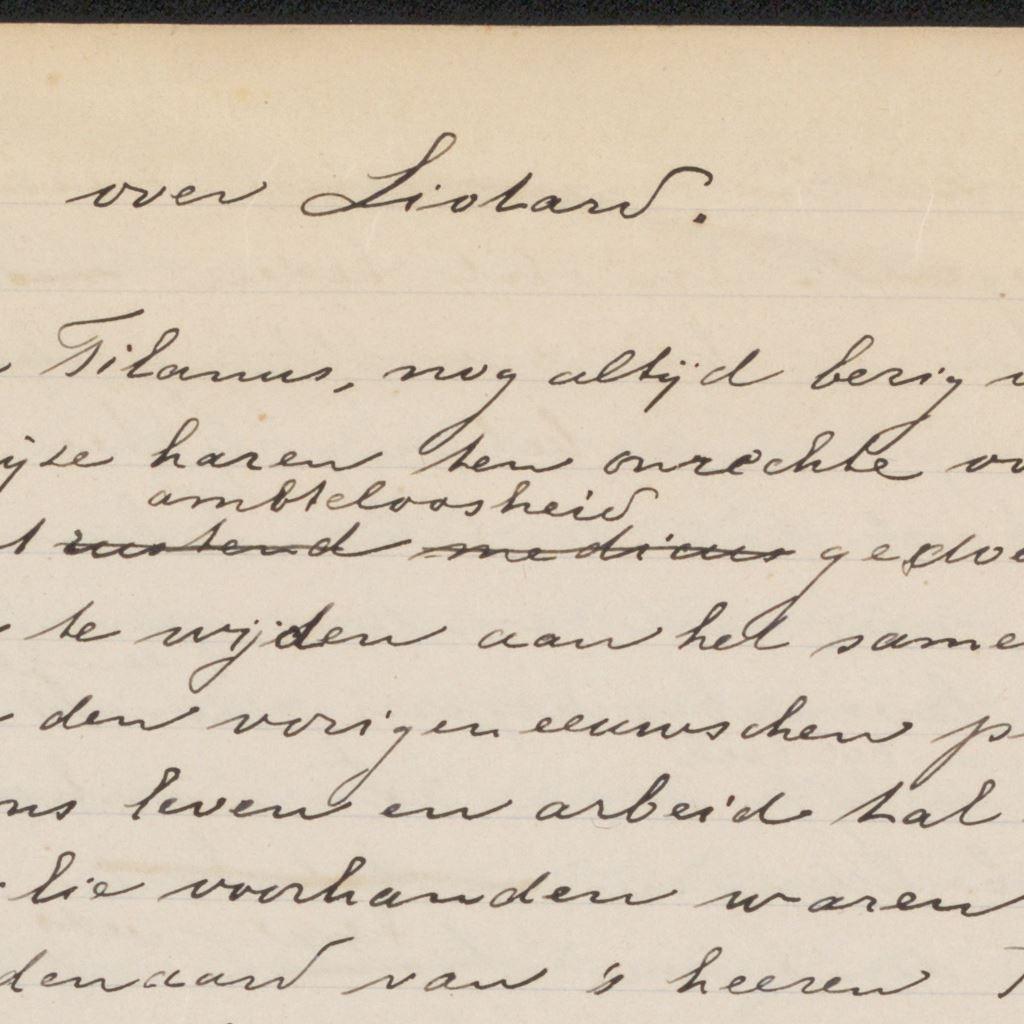 over Liotard.
Tilanus, nog altijd bezig
haren ten onrechte
ambteloosheid
rustend medicus gedoe
te wijden aan het same
den vorigen eeuwschen p
ns leven en arbeid tal
lie voorhanden waren
denaard van 's heeren T